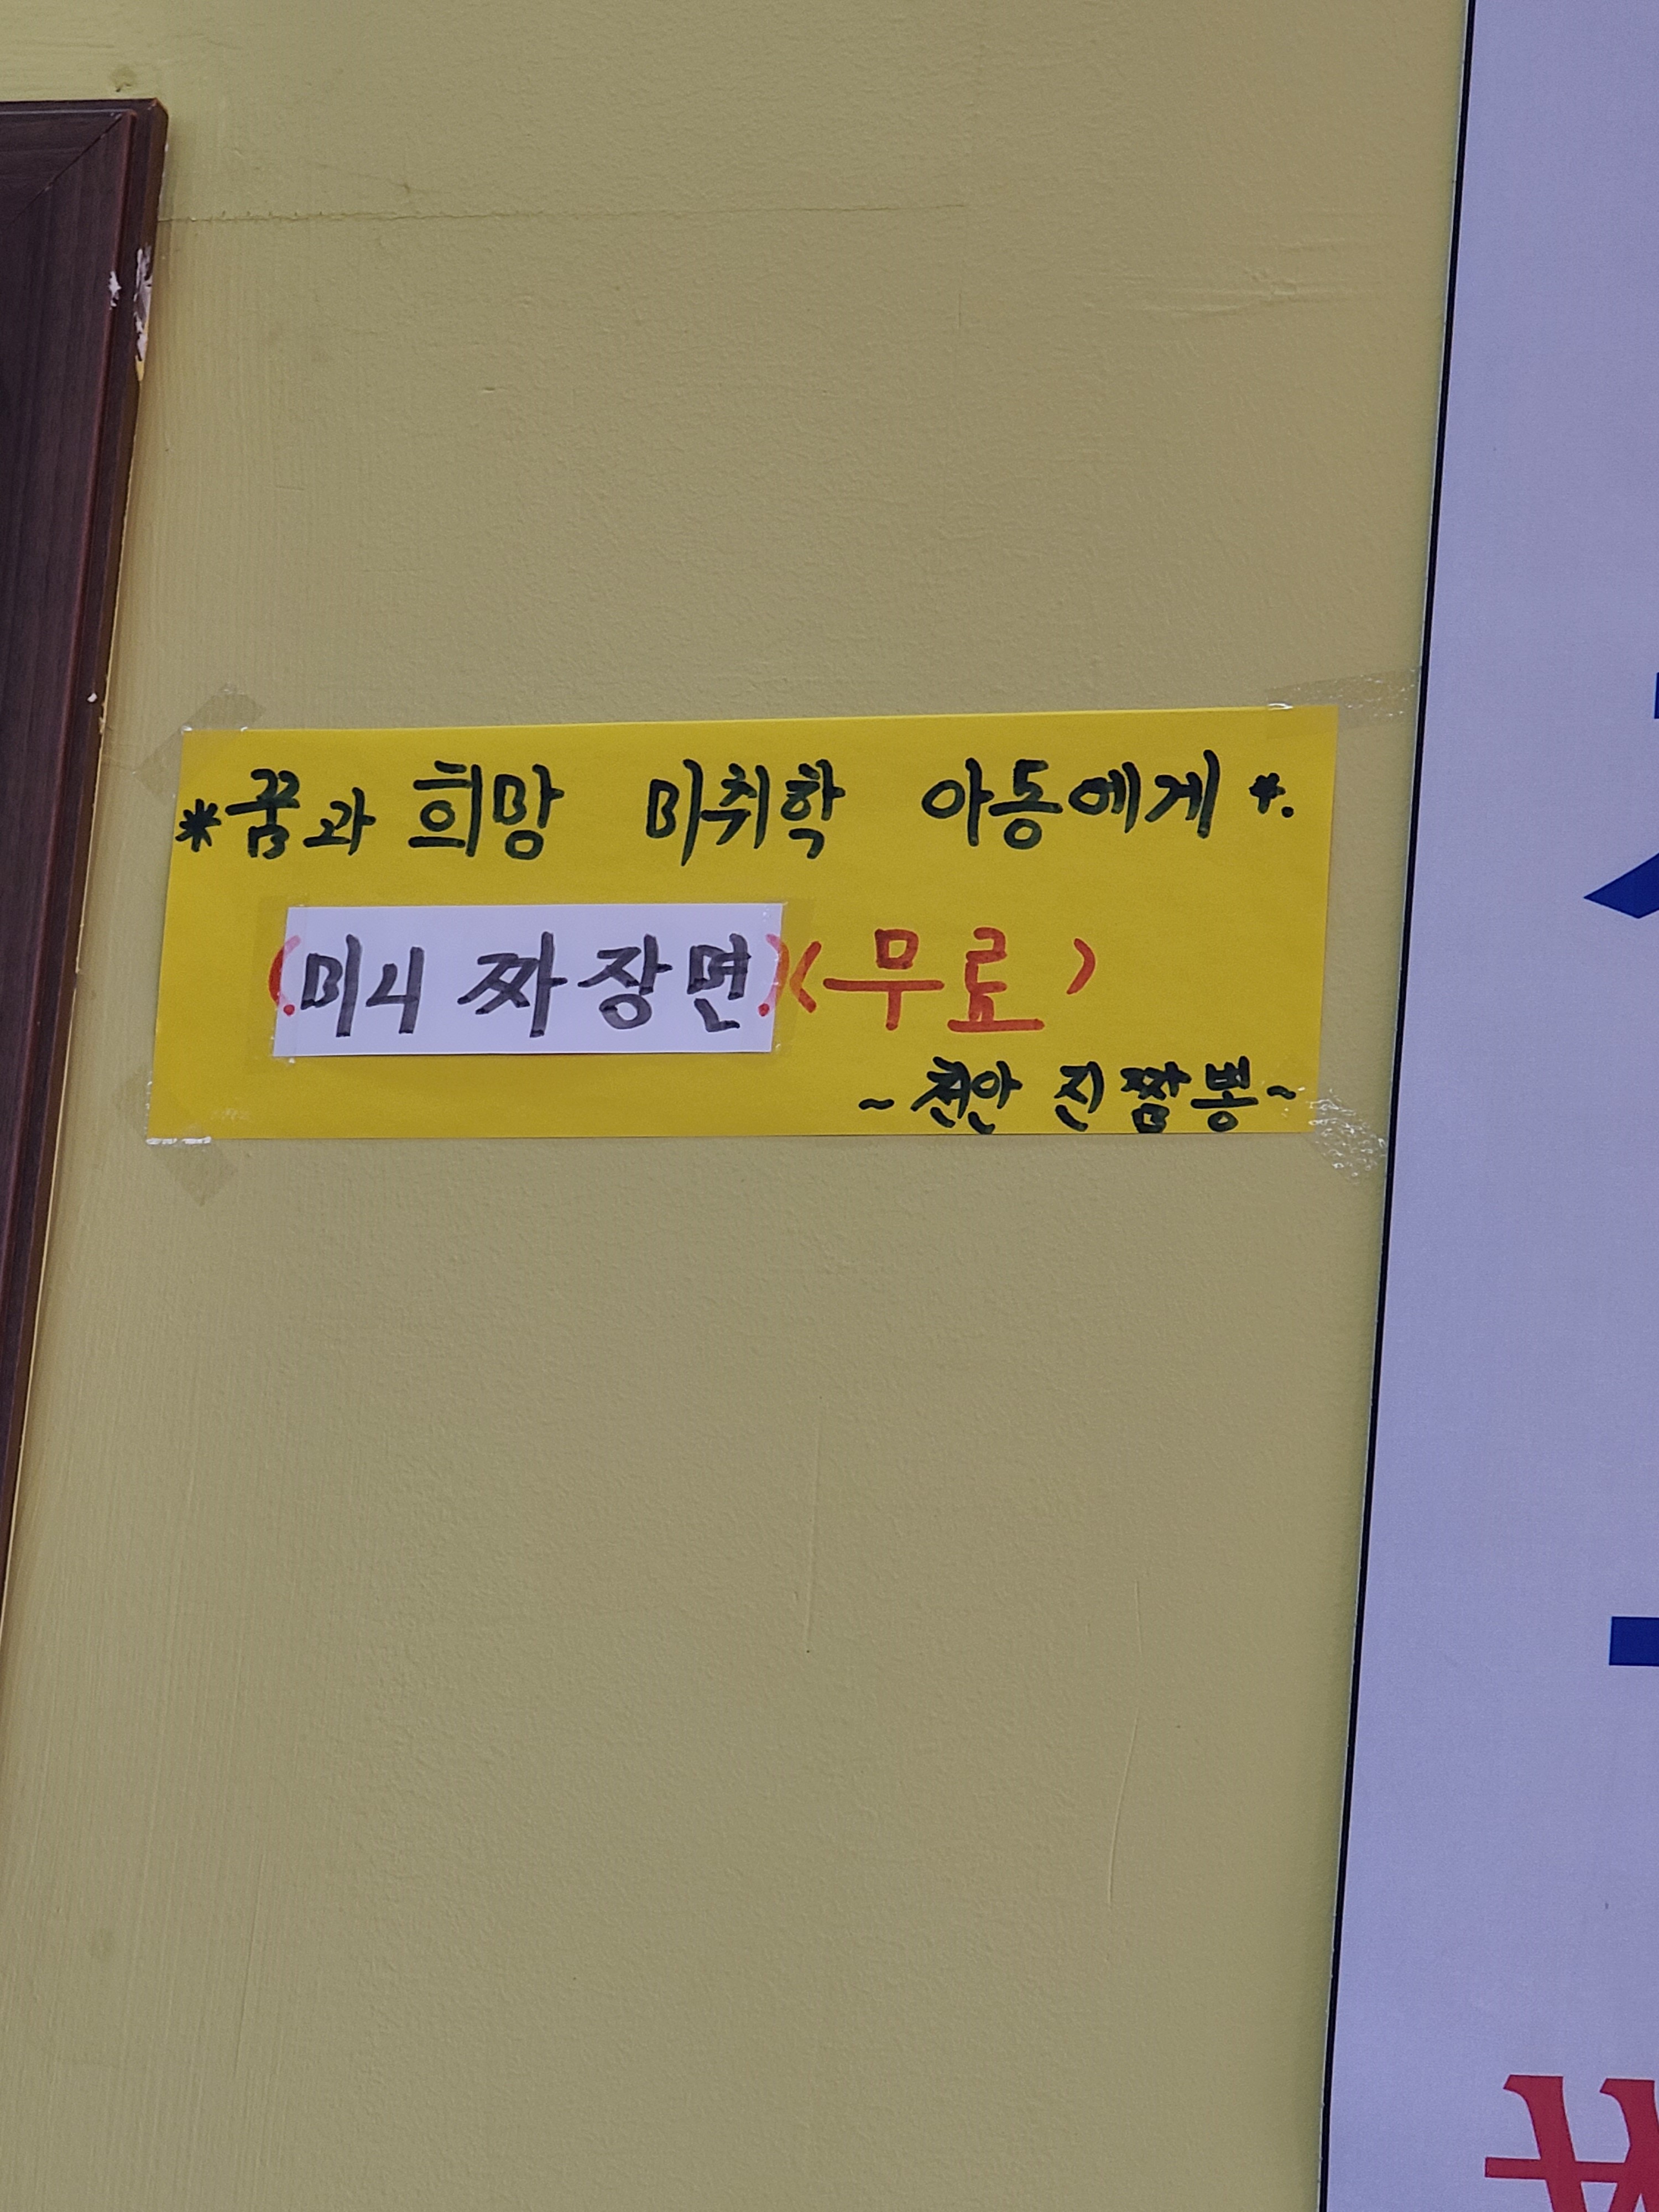 *꿈과 희망 미취학 아동에게*.
(미니 짜장면)<무료>
~천안 진짬뽕~
₩